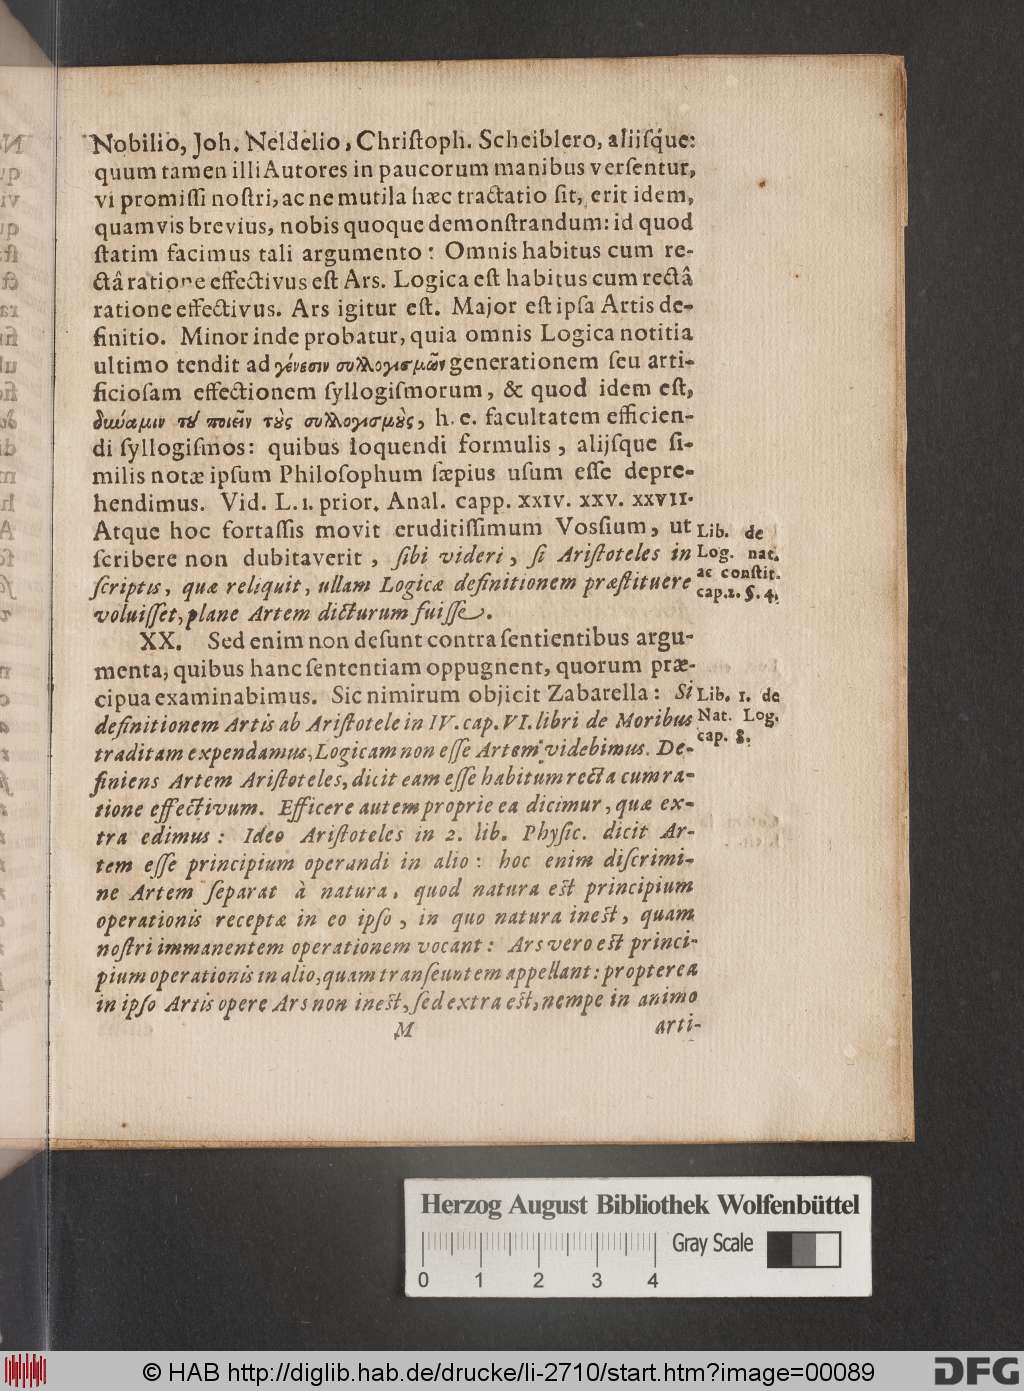 Nobilio, Joh. Neldelio, Chriſtoph. Scheiblero, aliiſque:
quum tamen illi Autores in paucorum manibus verſentur,
vi promiſſi noſtri, ac ne mutila hæc tractatio ſit, erit idem,
quamvis brevius, nobis quoque demonſtrandum: id quod
ſtatim facimus tali argumento: Omnis habitus cum re-
ctâ ratione effectivus eſt Ars. Logica eſt habitus cum rectâ
ratione effectivus. Ars igitur eſt. Major eſt ipſa Artis de-
finitio. Minor inde probatur, quia omnis Logica notitia
ultimo tendit ad γένεσιν συλλογισμῶν generationem ſeu arti-
ficioſam effectionem ſyllogiſmorum, & quod idem eſt,
δύναμιν τοῦ ποιεῖν τοὺς συλλογισμοὺς, h. e. facultatem efficien-
di ſyllogiſmos: quibus loquendi formulis, alijſque ſi-
milis notæ ipſum Philoſophum ſæpius uſum eſſe depre-
hendimus. Vid. L. 1. prior. Anal. capp. XXIV. XXV. XXVII.
Atque hoc fortaſſis movit eruditiſſimum Voſſium, ut
ſcribere non dubitaverit, ſibi videri, ſi Ariſtoteles in
ſcriptis, quæ reliquit, ullam Logicæ definitionem præſtituere
voluiſſet, plane Artem dicturum fuiſſe.
Lib. de
Log. nat.
ac conſtit.
cap. 2. §. 4.
XX. Sed enim non deſunt contra ſentientibus argu-
menta, quibus hanc ſententiam oppugnent, quorum præ-
cipua examinabimus. Sic nimirum objicit Zabarella: Si
definitionem Artis ab Ariſtotele in IV. cap. VI. libri de Moribus
traditam expendamus, Logicam non eſſe Artem videbimus. De-
finiens Artem Ariſtoteles, dicit eam eſſe habitum recta cum ra-
tione effectivum. Efficere autem proprie ea dicimur, quæ ex-
tra edimus: Ideo Ariſtoteles in 2. lib. Phyſic. dicit Ar-
tem eſſe principium operandi in alio: hoc enim diſcrimi-
ne Artem ſeparat à natura, quod natura eſt principium
operationis receptæ in eo ipſo, in quo natura ineſt, quam
noſtri immanentem operationem vocant: Ars vero eſt princi-
pium operationis in alio, quam tranſeuntem appellant: propterea
in ipſo Artis opere Ars non ineſt, ſed extra eſt, nempe in animo
Lib. 1. de
Nat. Log.
cap. 8.
M
arti-
Herzog August Bibliothek Wolfenbüttel
Gray Scale
0 1 2 3 4
© HAB http://diglib.hab.de/drucke/li-2710/start.htm?image=00089
DFG